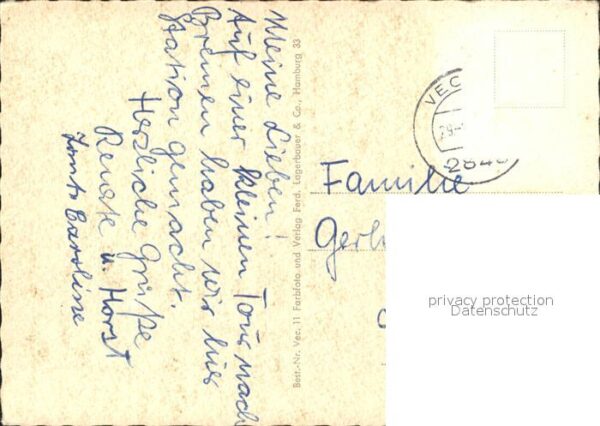 Meine Lieben!
Auf einer kleinen Tour nach
Bremen haben wir hier
Station gemacht.
Herzliche Grüße
Renate u. Horst
Caroline
Best.-Nr. Vec. 11 Farbfoto und Verlag Ferd. Lagerbauer & Co., Hamburg 33
VEC
2848
Familie
Gerh
privacy protection
Datenschutz